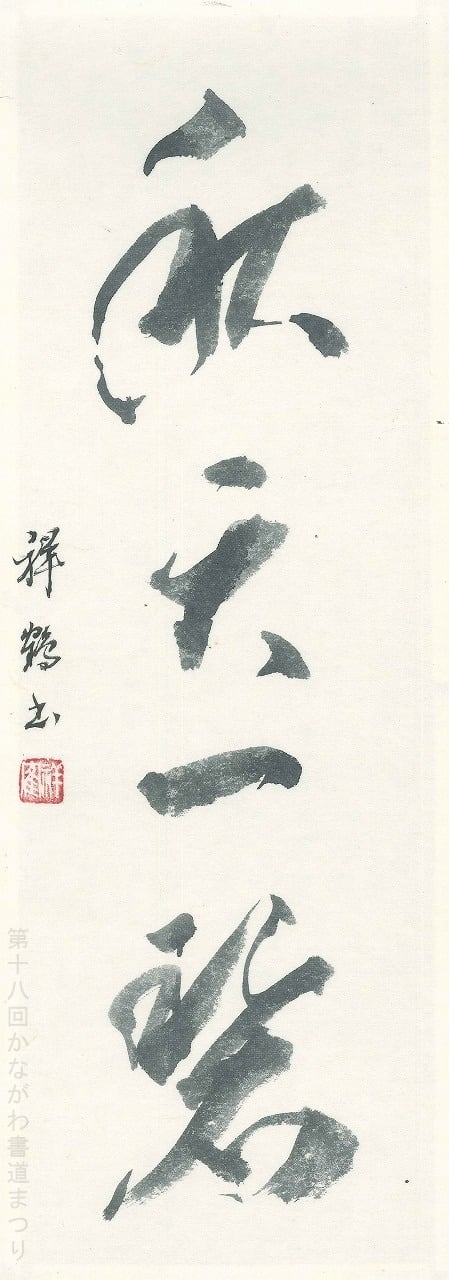 秋天一碧
祥鶴書
祥鶴
第十八回かながわ書道まつり